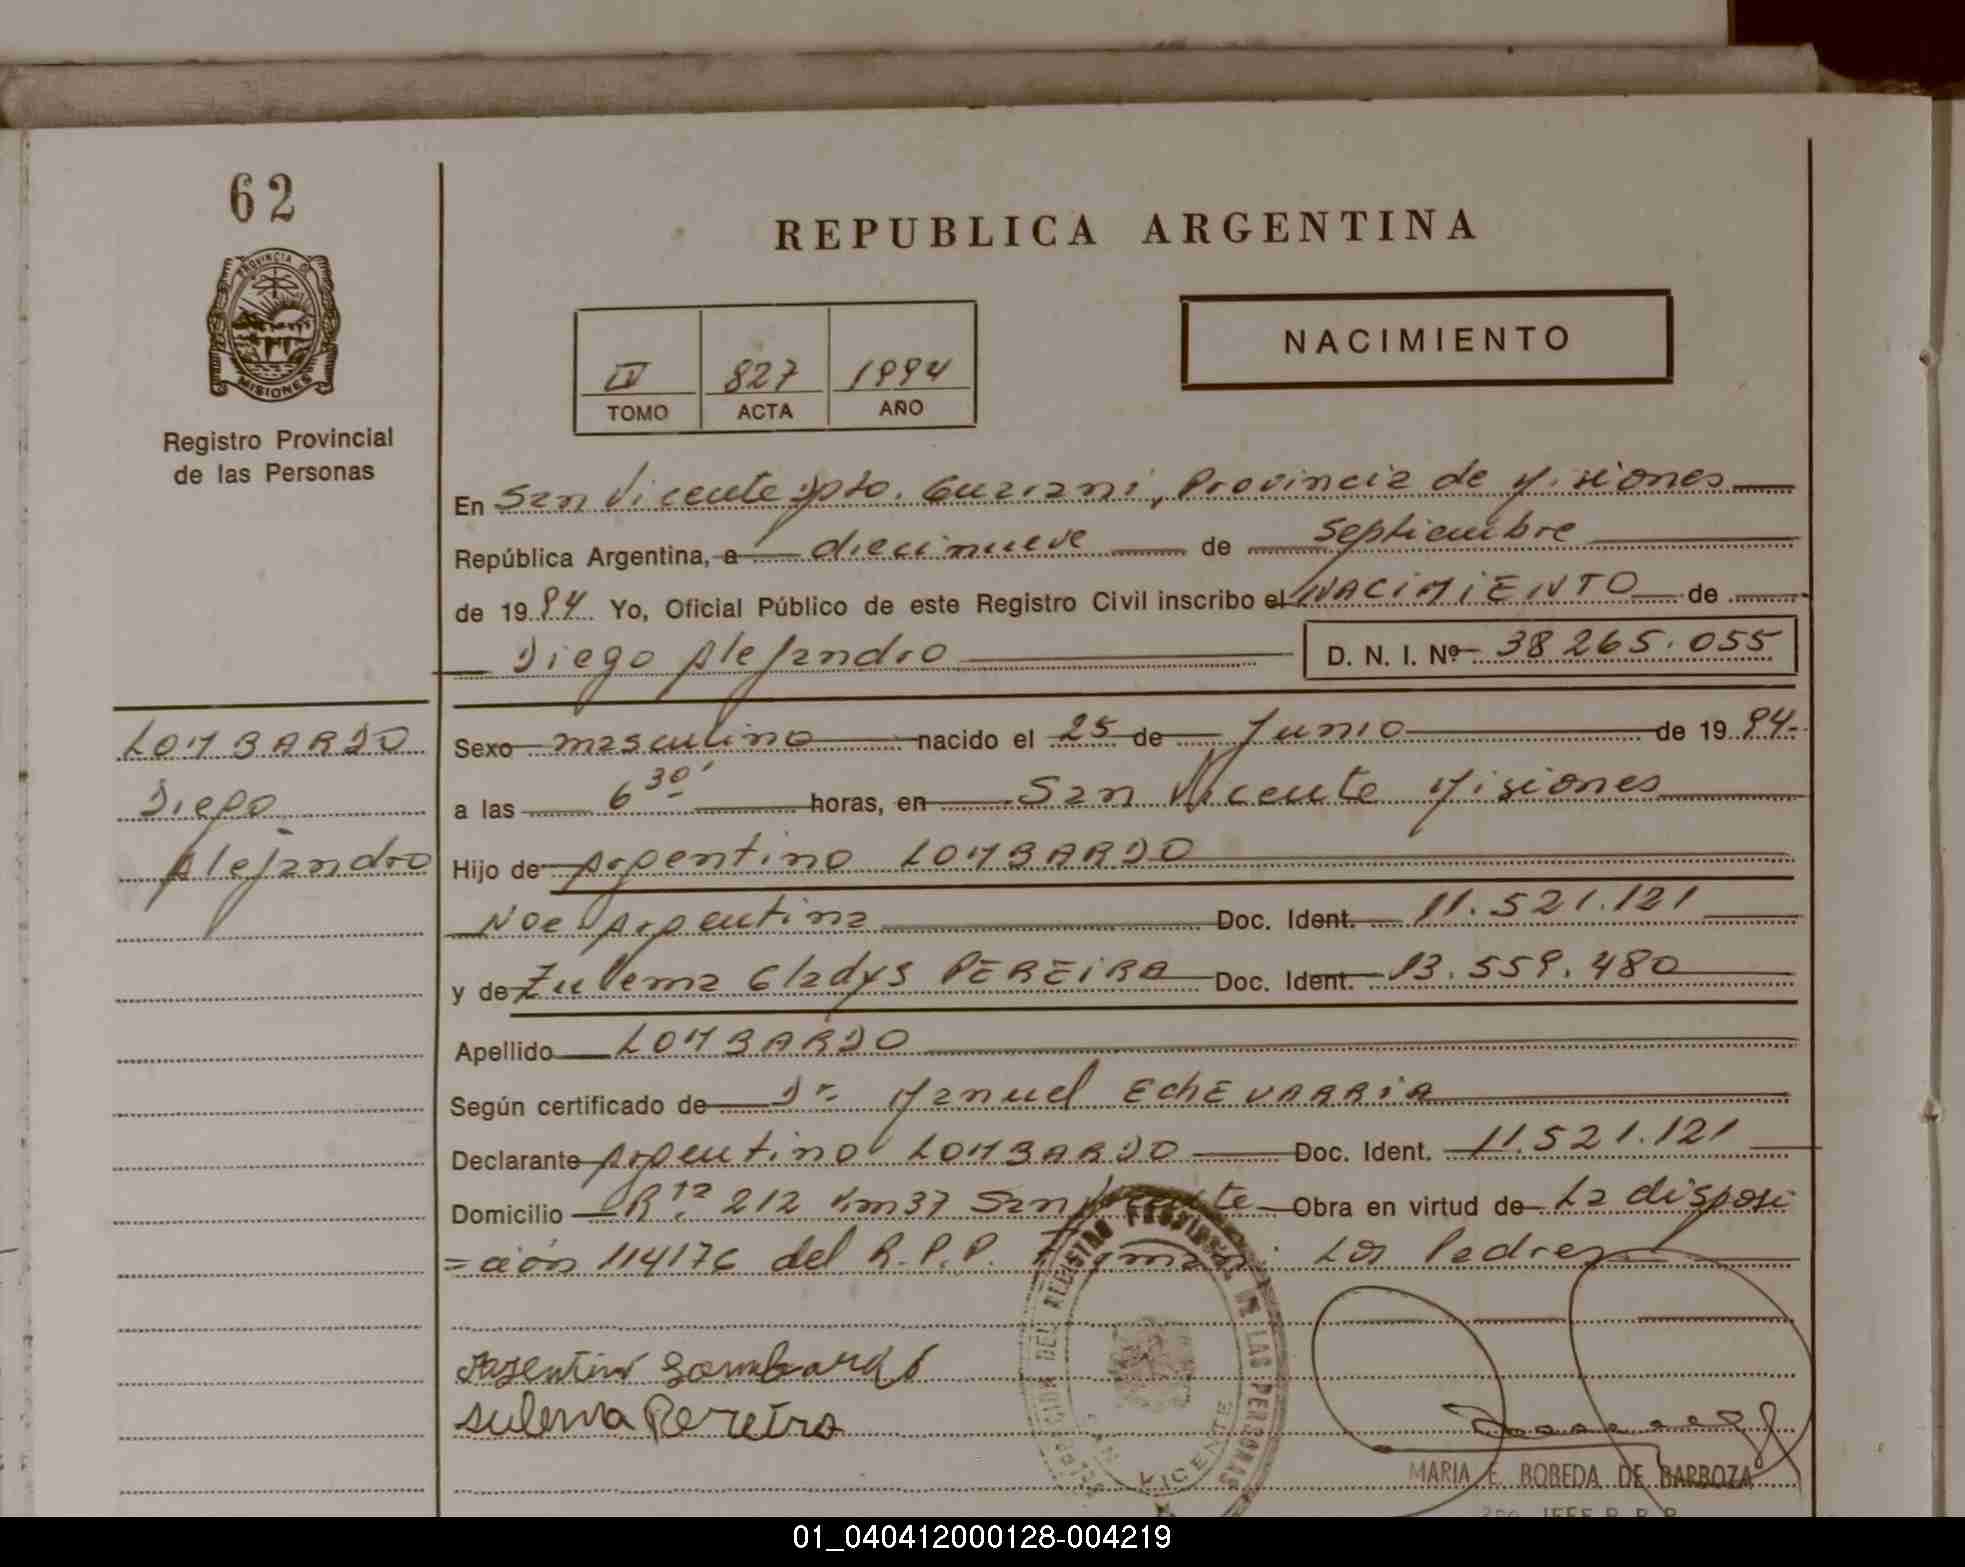 62
REPUBLICA ARGENTINA
PROVINCIA DE
MISIONES
Registro Provincial
de las Personas
IV 827 1994
TOMO ACTA AÑO
NACIMIENTO
En San Vicente Dpto. Guarani, Provincia de Misiones
República Argentina, a diecinueve de Septiembre
de 1994 Yo, Oficial Público de este Registro Civil inscribo el NACIMIENTO de
Diego Alejandro D. N. I. Nº 38265.055
LOMBARDO
Diego
Alejandro
Sexo masculino nacido el 25 de Junio de 1994.
a las 6 30' horas, en San Vicente Misiones
Hijo de Argentino LOMBARDO
Nac Argentina Doc. Ident. 11.521.121
y de Zulema Gladys PEREIRA Doc. Ident. 13.559.480
Apellido LOMBARDO
Según certificado de Dr. Manuel EchEVARRiA
Declarante Argentino LOMBARDO Doc. Ident. 11.521.121
Domicilio Rta. 212 Km 37 San Vicente Obra en virtud de La disposi
=ción 114176 del R.P.P. Firman: Los Padres
Argentino Lombardo
Sulema Pereira
DEL REGISTRO PROVINCIAL DE LAS PERSONAS
SAN VICENTE
MARIA E. BOBEDA DE BARBOZA
01_040412000128-004219